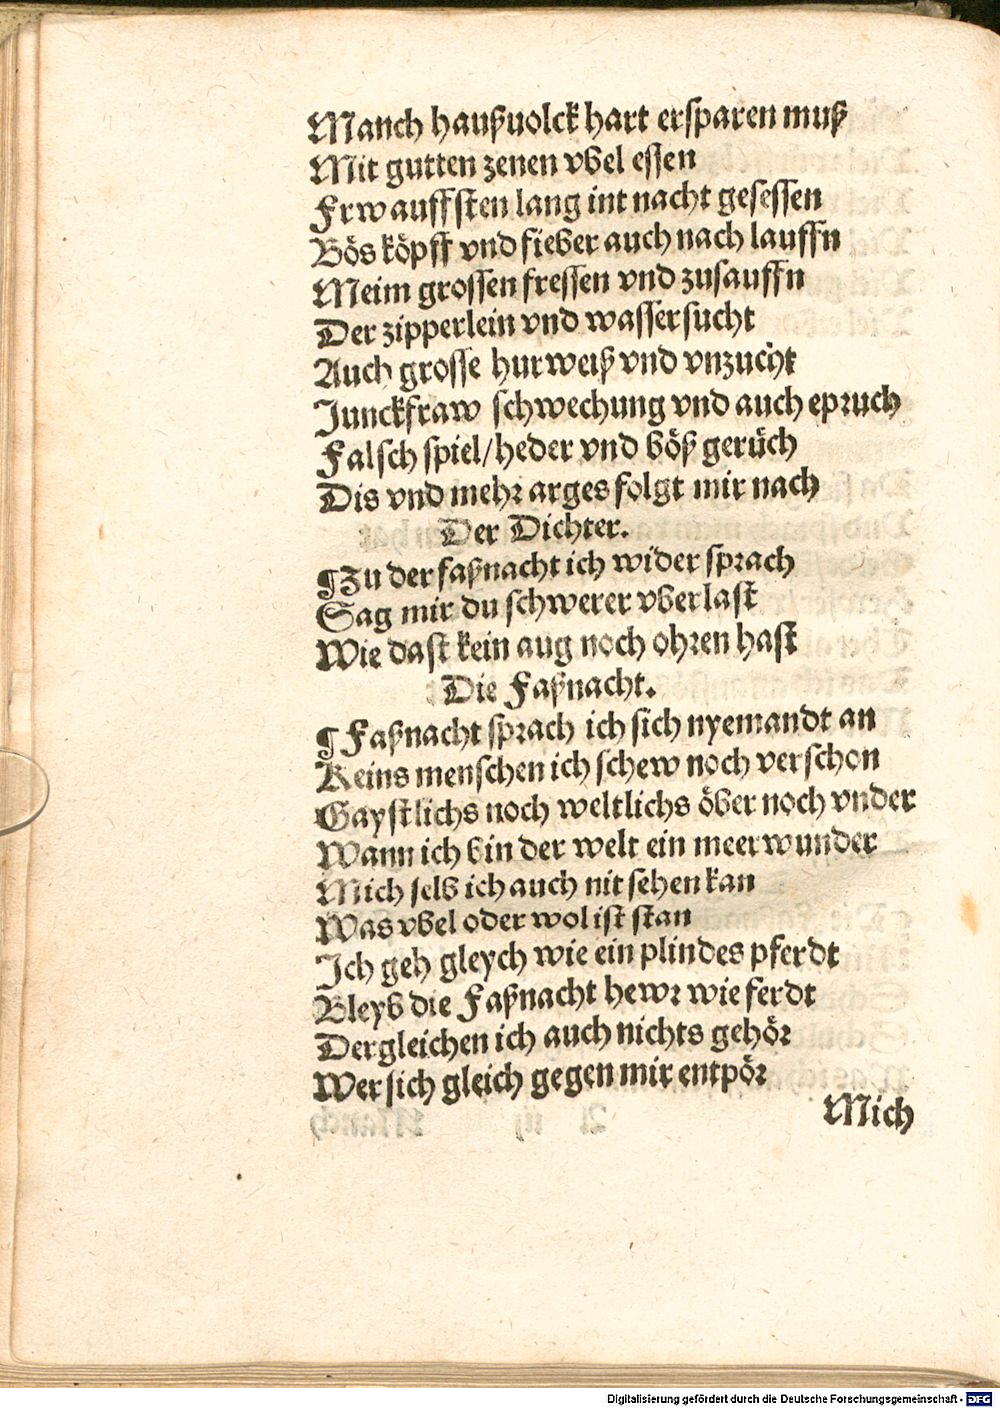 Manch haußuolck hart ersparen muß
Mit gutten zenen vbel essen
Frw auffsten lang int nacht gesessen
Bös köpff vnd fieber auch nach lauffn
Meim grossen fressen vnd zusauffn
Der zipperlein vnd wassersucht
Auch grosse hurweiß vnd vnzucht
Junckfraw schwechung vnd auch epruch
Falsch spiel/heder vnd böß gerüch
Dis vnd mehr arges folgt mir nach
Der Dichter.
¶Zu der faßnacht ich wider sprach
Sag mir du schwerer vberlast
Wie dast kein aug noch ohren hast
Die Faßnacht.
¶Faßnacht sprach ich sich nyemandt an
Keins menschen ich schew noch verschon
Gaystlichs noch weltlichs öber noch vnder
Wann ich bin der welt ein meerwunder
Mich selb ich auch nit sehen kan
Was vbel oder wol ist stan
Ich geh gleych wie ein plindes pferdt
Bleyb die Faßnacht hewr wie ferdt
Dergleichen ich auch nichts gehör
Wer sich gleich gegen mir entpör
Mich
Digitalisierung gefördert durch die Deutsche Forschungsgemeinschaft - DFG